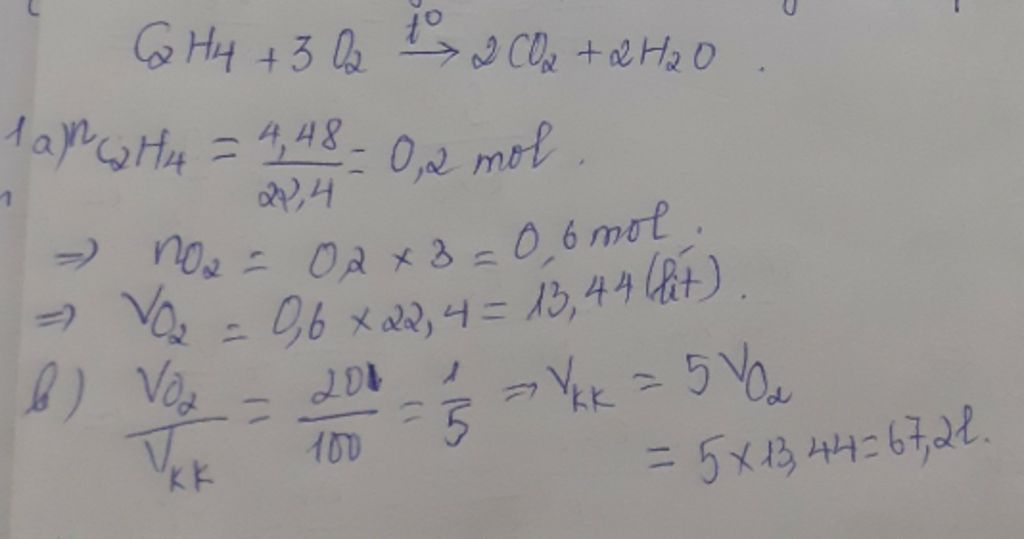 C2H4 + 3O2 t° → 2CO2 + 2H2O .
1a) nC2H4 = 4,48 / 22,4 = 0,2 mol .
=> nO2 = 0,2 × 3 = 0,6 mol .
=> VO2 = 0,6 × 22,4 = 13,44 (lít) .
b) VO2 / VKK = 20 / 100 = 1 / 5 => VKK = 5 VO2
= 5 × 13,44 = 67,2 l.